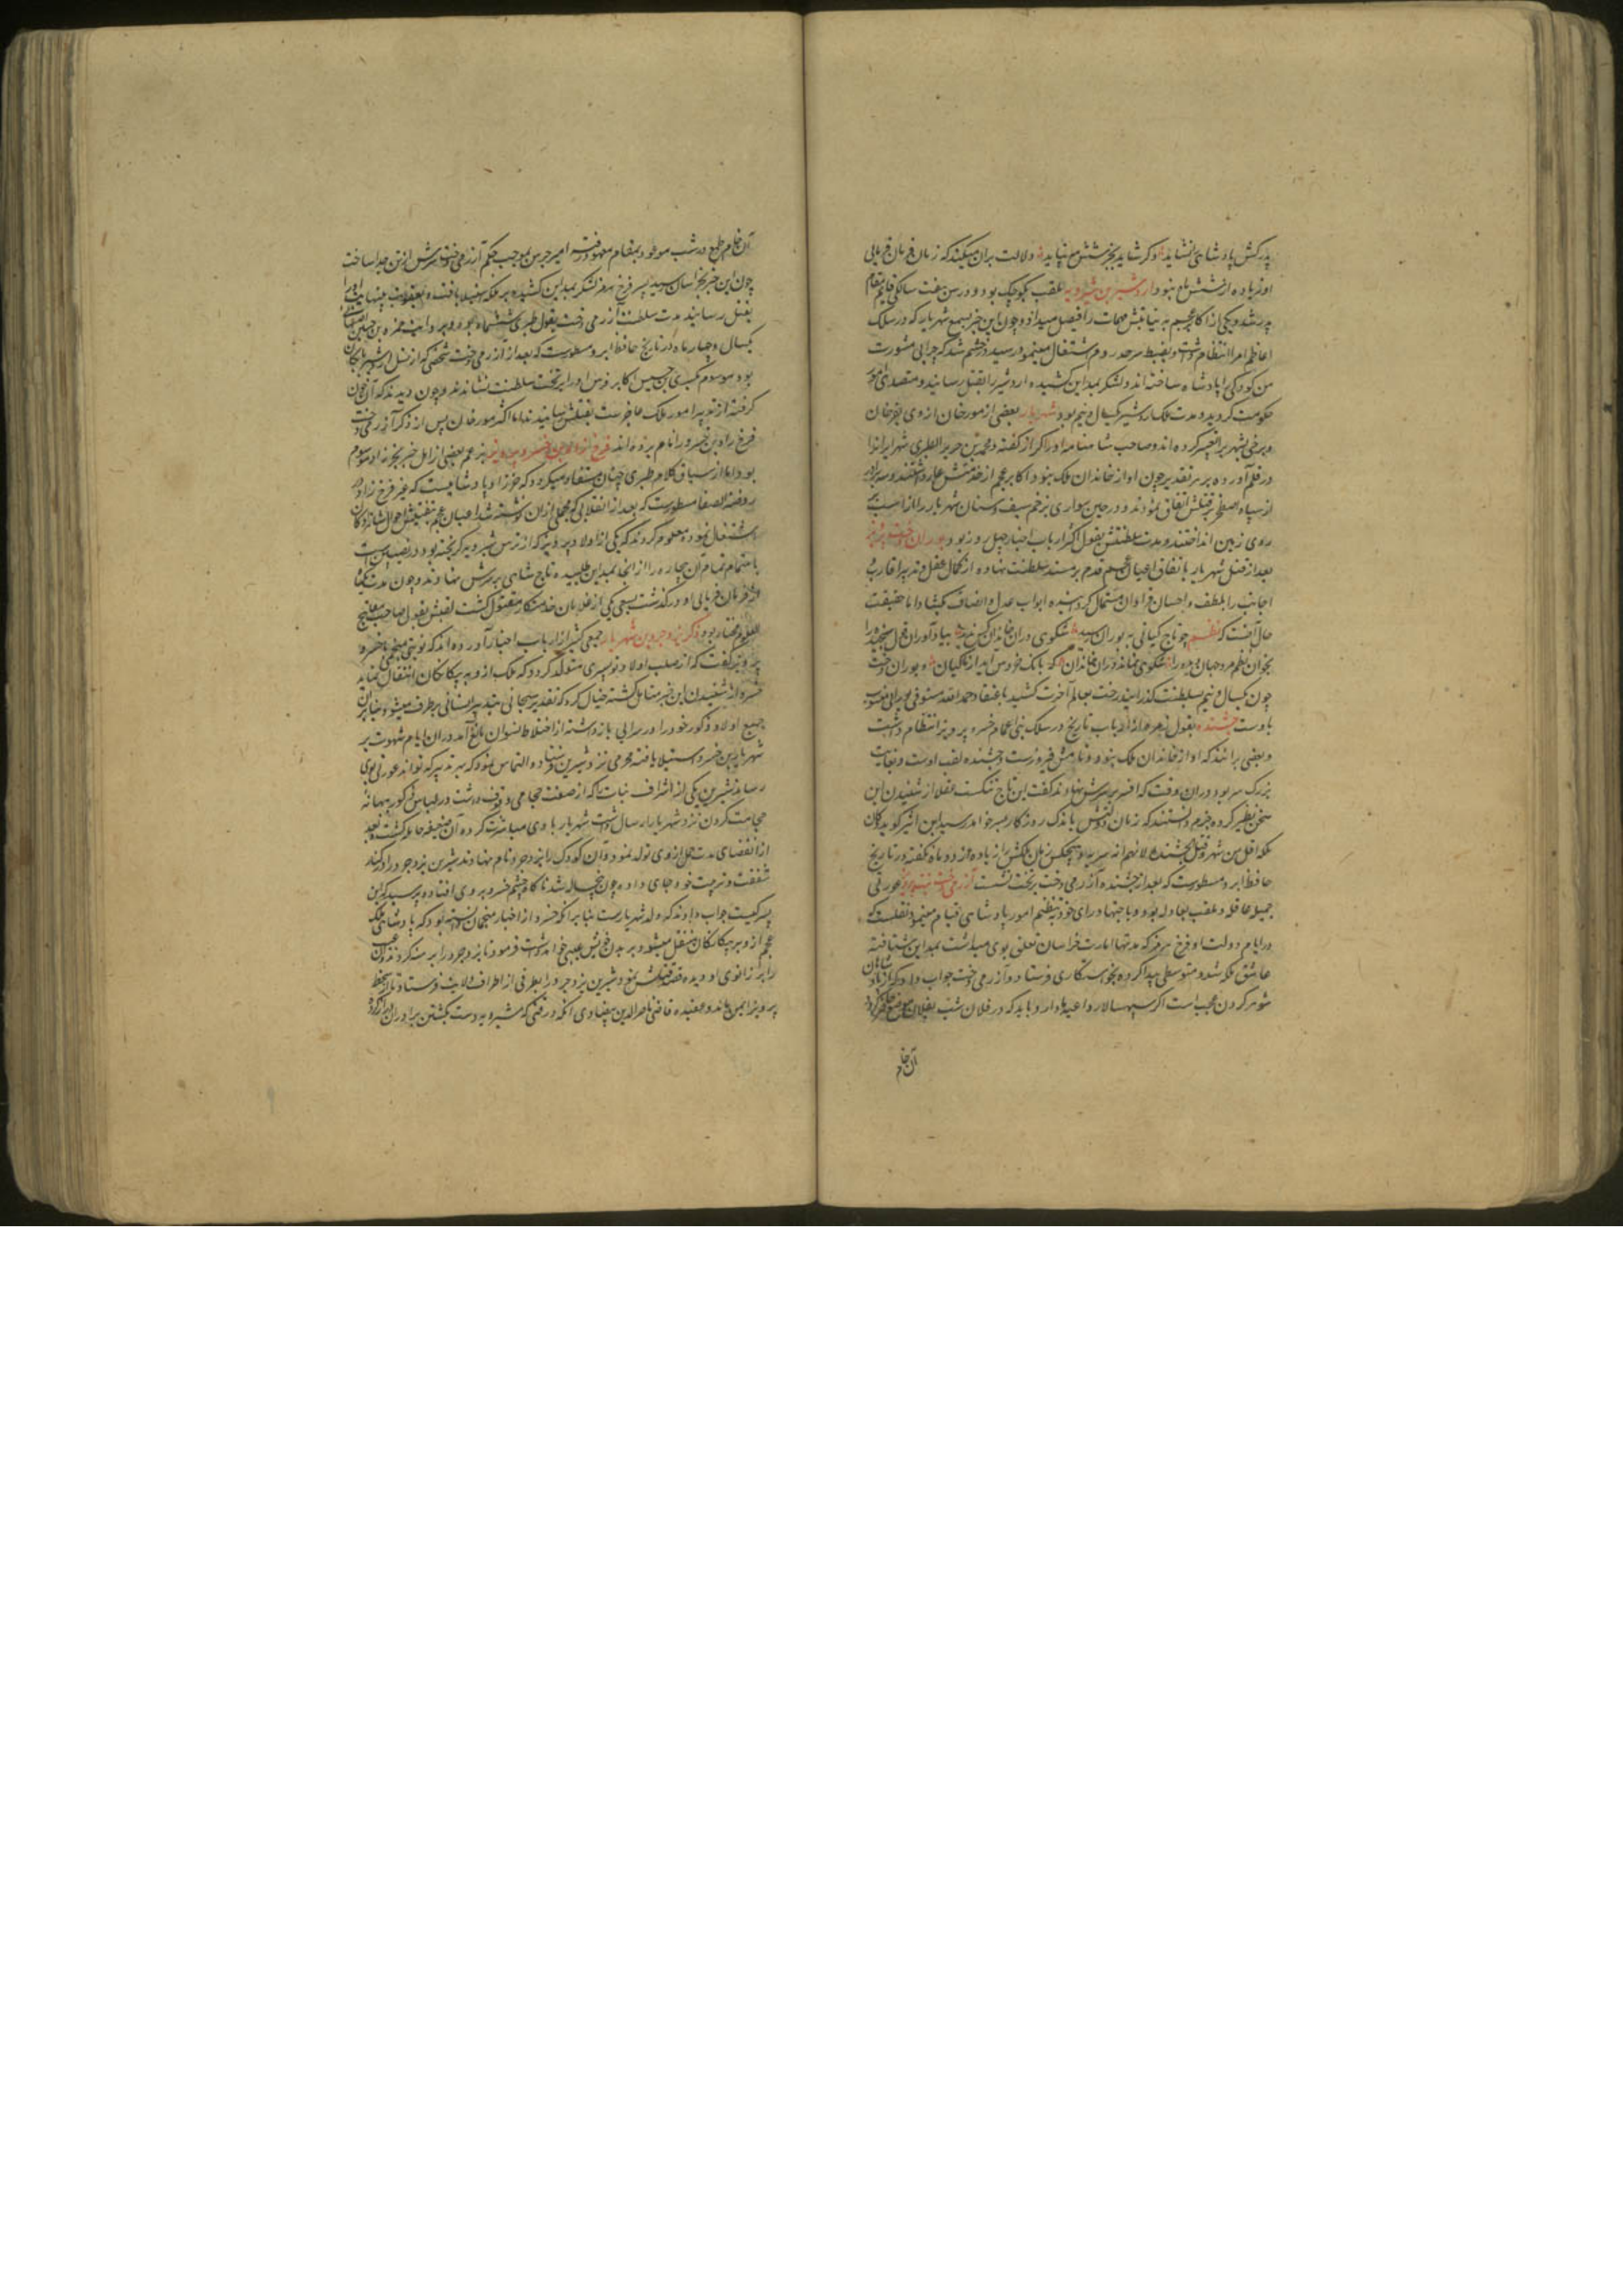 پدرکش پادشاهی نشاید و گر شاید بجز شش مه نپاید دلالت بران میکند که زمان فرمان فرمایی
او زیاده از شش ماه نبود اردشیر بن شیرویه ملقب بکوچک بود و در سن هفت سالگی قایم مقام
پدر شد و یکی از اکابر عجم به نیابتش مهمات را فیصل میداد و چون این خبر بسمع شهریار که در سلک
اعاظم امرا انتظام داشت و بضبط سرحد روم اشتغال مینمود رسید در خشم شد که چرا بی مشورت
من کودکی را پادشاه ساخته اند و لشکر بمداین کشیده اردشیر را بقتل رسانید و متصدی امر
حکومت گردید و مدت ملک اردشیر یکسال و نیم بود شهریار بعضی از مورخان از وی بفرخان
و برخی بشهربراز تعبیر کرده اند و صاحب شاهنامه او را گراز گفته و محمد بن جریر الطبری شهرایران
در قلم آورده بر هر تقدیر چون او از خاندان ملک نبود اکابر عجم از خدمتش عار داشتند و سه برادر
از سپاه اصطخر بر قتلش اتفاق نمودند و در حین سواری بزخم سیف و سنان شهریار را از اسب بر
روی زمین انداختند و مدت سلطنتش بقول اکثر ارباب اخبار چهل روز بود بوران دخت پرویز
بعد از قتل شهریار باتفاق اعیان عجم قدم بر مسند سلطنت نهاده از کمال عقل و تدبیر اقارب
اجانب را بلطف و احسان فراوان مستمال گردانیده ابواب عدل و انصاف بگشاد اما حقیقت
حال آنست که نظم چو تاج کیانی به بوران رسید شکوهی دران خاندان کس ندید بیاد آوران قول سنجیده را
بخوان نظم مرد جهان دیده را شکوهی نماند دران خاندان که بانگ خروس آید از ماکیان و بوران دخت
چون یکسال و نیم بسلطنت گذرانید رخت بعالم آخرت کشید باعتقاد حمد الله مستوفی پوران منسوب
باوست جشنده بقول زمره از ارباب تاریخ در سلک بنی اعمام خسرو پرویز انتظام داشت
و بعضی برانند که او از خاندان ملک نبود و نامش فیروزست و جشنده لقب اوست و بغایت
بزرگ سر بود دران وقت که افسر بر سرش نهادند گفت این تاج تنگست عقلا از شنیدن این
سخن تطیر کرده بجزم دانستند که زمان دولتش باندک روزگار بسر خواهد رسید ابن اثیر گوید کان
ملکه اقل من شهر و قتل جشنده لانهم
حافظ ابرو مسطورست که بعد از جشنده آزرمی دخت بر تخت نشست آزرمی دخت پرویز عورتی
جمیله عاقله و ملقب بعادله بود و باجتهاد رای خود بتنظیم امور پادشاهی قیام مینمود نقلست که
در ایام دولت او فرخ هرمز که مدتها امارت خراسان تعلق بوی میداشت بمداین شتافته
عاشق ملکه شد و متوسطی پیدا کرده بخواستگاری فرستاد و آزرمی دخت جواب داد که شاهان را
شوهر کردن عجب است اگر سپهسالار داعیه دارد باید که در فلان شب بفلان موضع حاضر گردد
آن خام
آن خام طمع در شب موعود بمقام معهود رفته امیر حرس بموجب حکم آزرمی دخت سرش از تن جدا ساخت
چون این خبر بخراسان رسید پسر فرخ هرمز لشکر بمداین کشیده بر ملکه استیلا یافته بعقوبت بینهایت او را
بقتل رسانید مدت سلطنت آزرمی دخت بقول طبری ششماه بود و بروایت حمزه بن حسین اصفهانی
یکسال و چهار ماه در تاریخ حافظ ابرو مسطورست که بعد از آزرمی دخت شخصی که از نسل اردشیر بابکان
بود موسوم بکسری بن اکابر فرس او را بر تخت سلطنت نشاندند و چون دیدند که آن جوان
گرفته از تدبیر امور ملک عاجزست بقتلش رسانیدند اما اکثر مورخان پس از ذکر آزرمی دخت
فرخ زاد بن خسرو را نام برده اند فرخ زاد بن خسرو پرویز بزعم بعضی از اهل خبر بخرزاد موسوم
بود اما از سیاق کلام طبری چنان مستفاد میگردد که خرزاد پادشاهیست که غیر فرخ زاد در
روضة الصفا مسطورست که بعد از انقلابی که مجملی ازان نوشته شد اعیان عجم بتفتیش احوال شاهزادگان
اشتغال نموده معلوم کردند که یکی از اولاد پرویز که از ترس شیرویه گریخته بود در نصیبین است
باهتمام تمام آن بیچاره را از انجا بمداین طلبیده تاج شاهی بر سرش نهادند و چون مدت یکماه
از فرمان فرمایی او درگذشت بسعی یکی از غلامان خدمتکار مقتول گشت لقبش بقول صاحب مفاتیح
العلوم مختار بود ذکر یزدجرد بن شهریار جمعی کثیر از ارباب اخبار آورده اند که نوبتی منجمی با خسرو
پرویز گفت که از صلب اولاد تو پسری متولد گردد که ملک ازو به بیگانگان انتقال نماید
خسرو از شنیدن این خبر متامل گشته خیال کرد که تقدیر سبحانی بتدبیر انسانی برطرف میشود بنابران
جمیع اولاد ذکور خود را در سرایی بازداشته از اختلاط نسوان مانع آمد دران ایام شهوت بر
شهریار بن خسرو استیلا یافته محرمی نزد شیرین فرستاده التماس نمود که بهر تدبیر که تواند عورتی بوی
رساند شیرین یکی از اشراف بنات را که از صفت حجامی وقوف داشت در لباس ذکور ببهانه
حجامت کردن نزد شهریار ارسال داشت شهریار با وی مباشرت کرده آن ضعیفه حامله گشت و بعد
از انقضای مدت حمل ازوی تولد نمود و آن کودک را یزدجرد نام نهادند شیرین یزدجرد را در کنار
شفقت و تربیت خود جای داده چون پنج ساله شد ناگاه چشم خسرو بروی افتاده پرسید که این
پسر کیست جواب دادند که ولد شهریارست بنابر آنکه خسرو از اخبار منجمان دانسته بود که پادشاهی ملک
عجم ازو به بیگانگان منتقل میشود و بر بدن آن شخص عیبی خواهد داشت فرمود تا یزدجرد را برهنه کردند و آن عیب
را بر زانوی او دیده قصد قتلش نمود شیرین یزدجرد را بطرفی از اطراف ولایت فرستاد تا از سخط
پرویز ایمن ماند و بعقیده قاضی ناصر الدین بیضاوی آنکه در وقتی که شیرویه دست بکشتن برادران دراز کرد